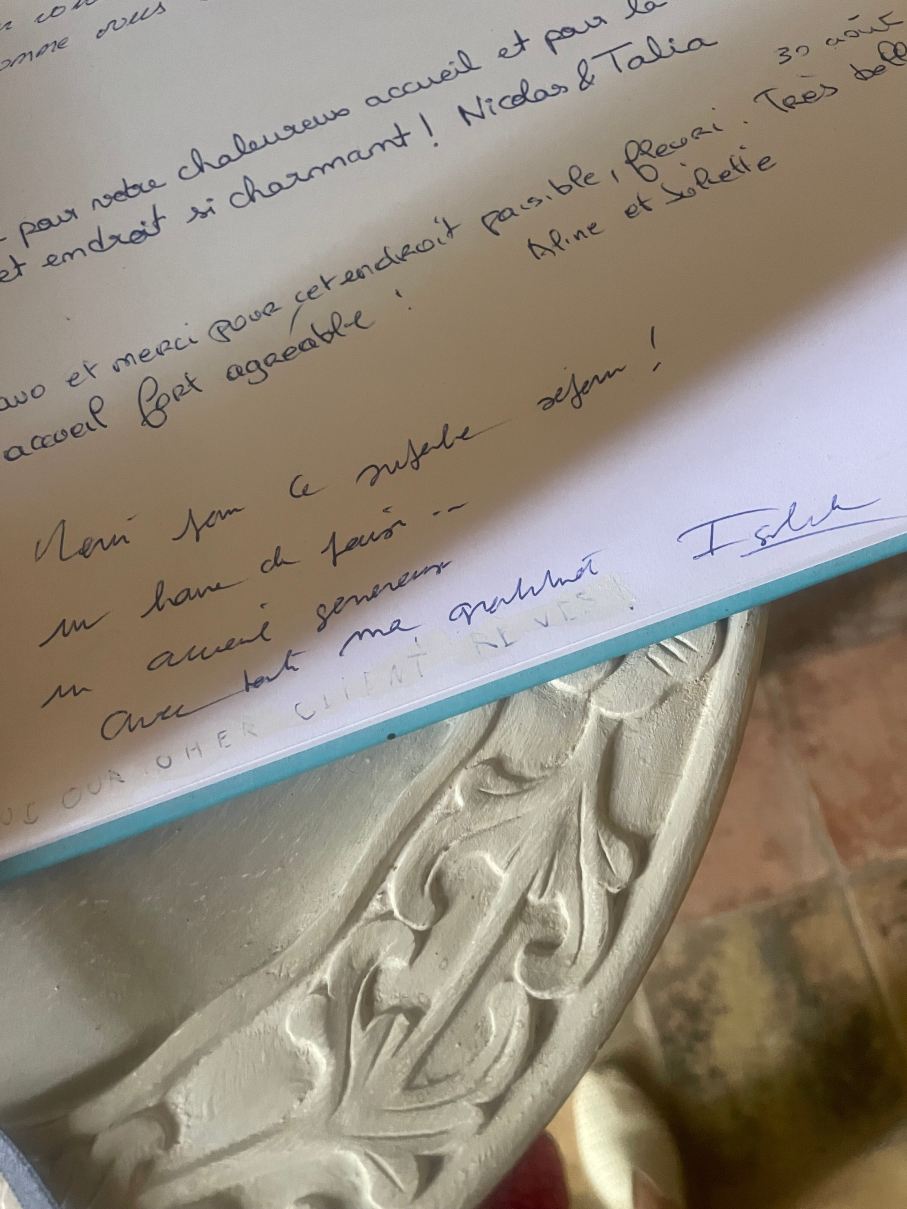 omme vous
pour votre chaleureux accueil et pour la
et endroit si charmant ! Nicolas & Talia
30 août
et merci pour cet endroit paisible, fleuri. Très bell
accueil fort agréable !
Aline et Juliette
Merci pour ce superbe séjour !
un havre de paix ..
un accueil généreux
avec toute ma gratitude
CLIENT REVES !